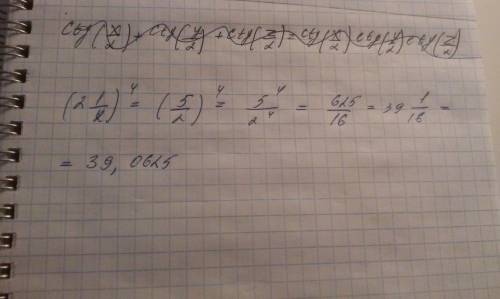 ctg(x/2) + ctg(y/2) + ctg(z/2) = ctg(x/2) ctg(y/2) ctg(z/2)
(2 1/2)^4 = (5/2)^4 = 5^4/2^4 = 625/16 = 39 1/16 =
= 39,0625